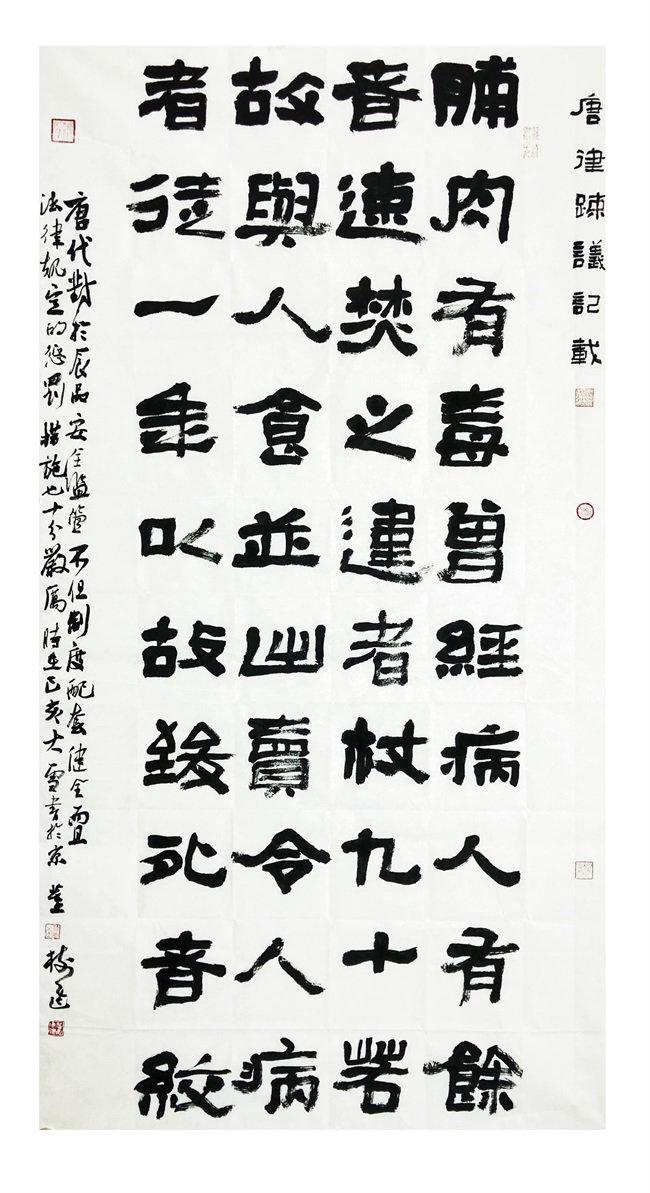 唐律踈議記載
脯肉有毒曾經病人有餘
音速焚之違者杖九十若
故與人食並出賣令人病
者徒一年以故致死音絞
唐代對於食品安全監管不但制度配套健全而且
法律規定的懲罰措施也十分嚴厲時在己亥大雪書於京 董